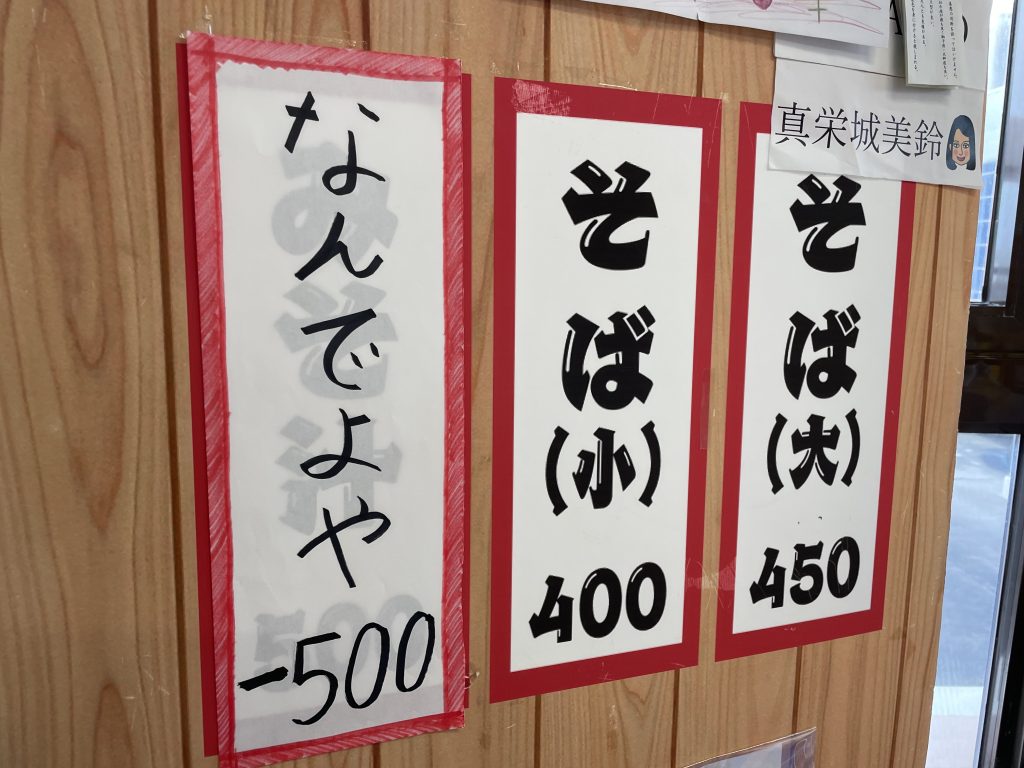 なんでよや
-500
そば
(小)
400
そば
(大)
450
真栄城美鈴
みそ汁
500